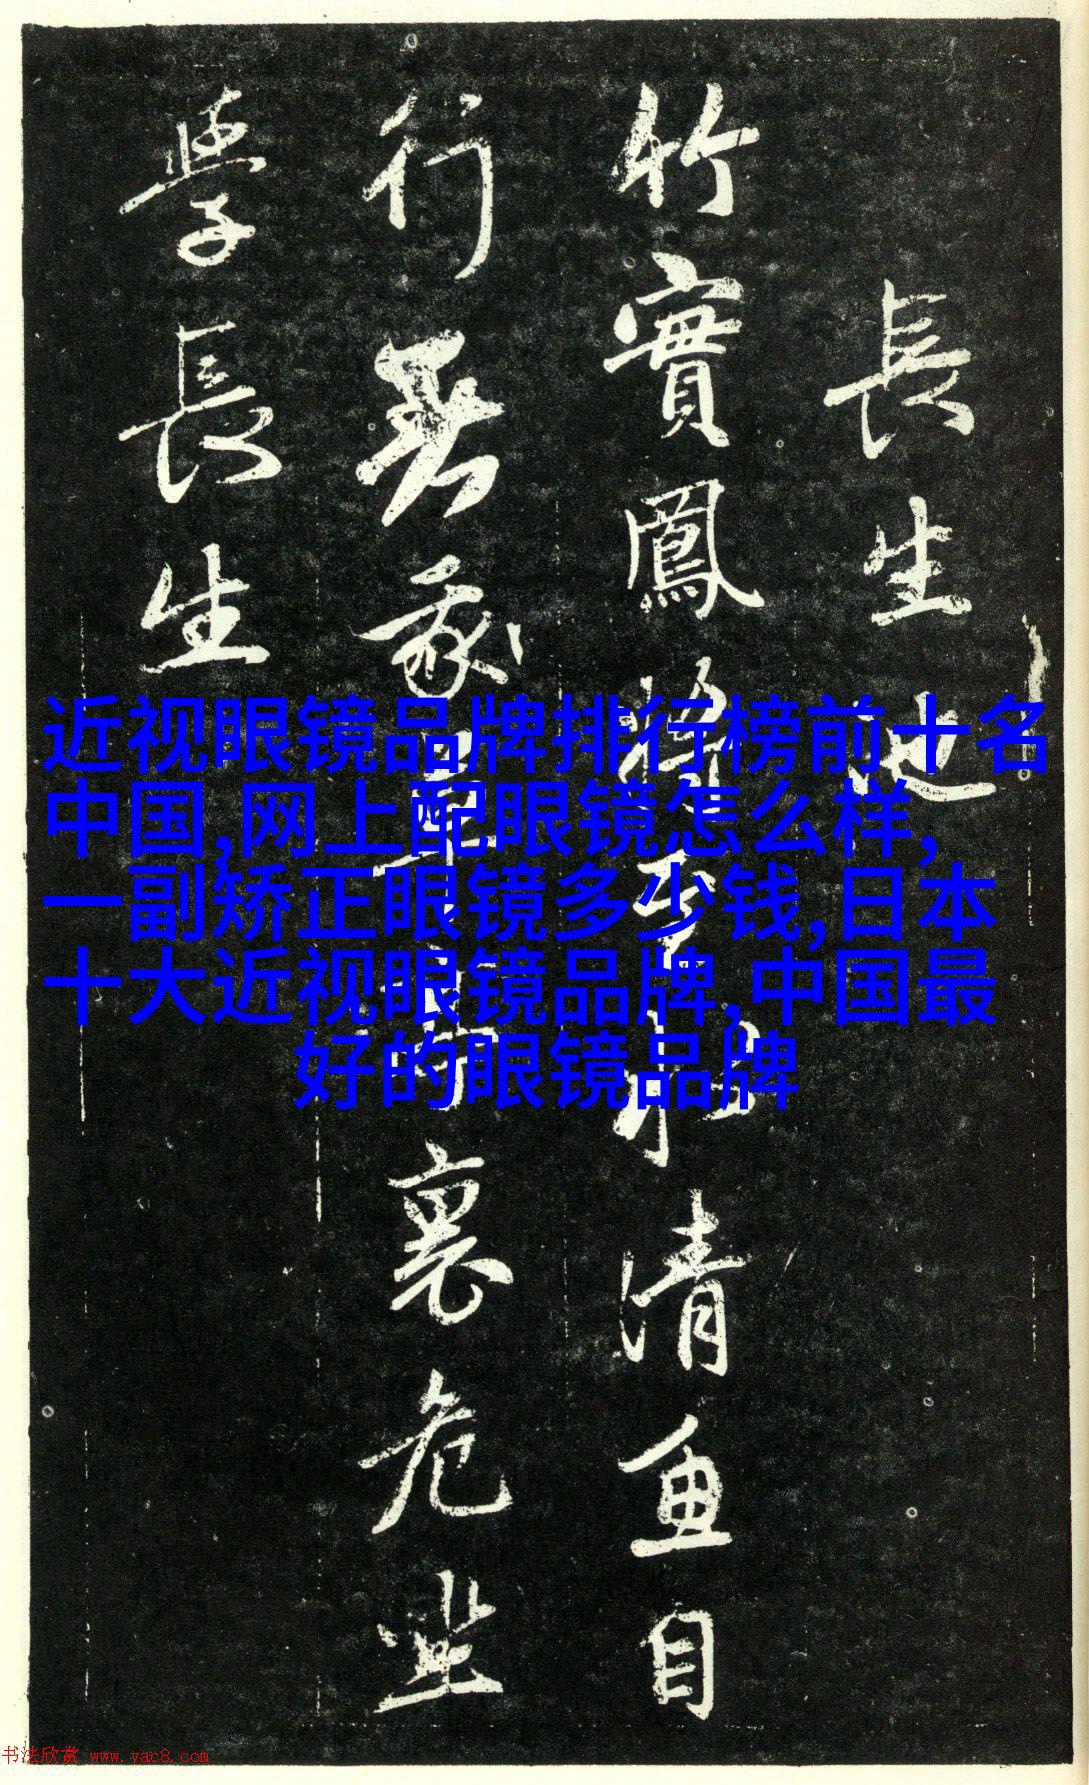 近视眼镜品牌排行榜前十名
中国,网上配眼镜怎么样,
一副矫正眼镜多少钱,日本
十大近视眼镜品牌,中国最
好的眼镜品牌
長生池
竹實鳳將至水清魚自
行裏危坐
學長生
书法欣赏 www.yac8.com